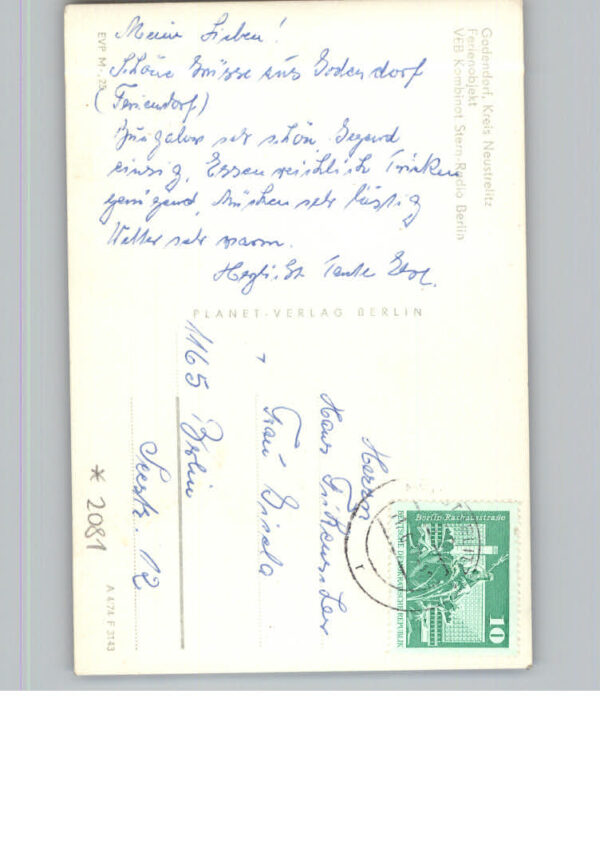 Meine Lieben!
Schöne Grüsse aus Godendorf
(Feriendorf)
Bungalow sehr schön, Gegend
einzig, Essen reichlich Trinken
genügend, Mücken sehr lästig
Wetter sehr warm.
Herzlichst Tante
Godendorf, Kreis Neustrelitz
Ferienobjekt
VEB Kombinat Stern-Radio Berlin
EVP M -,25
PLANET-VERLAG BERLIN
Herrn
Hans
Frau Gisela
1165 Berlin
Seestr. 12
* 2081
A 474 F 3143
Berlin-Rathausstraße
DEUTSCHE DEMOKRATISCHE REPUBLIK
10